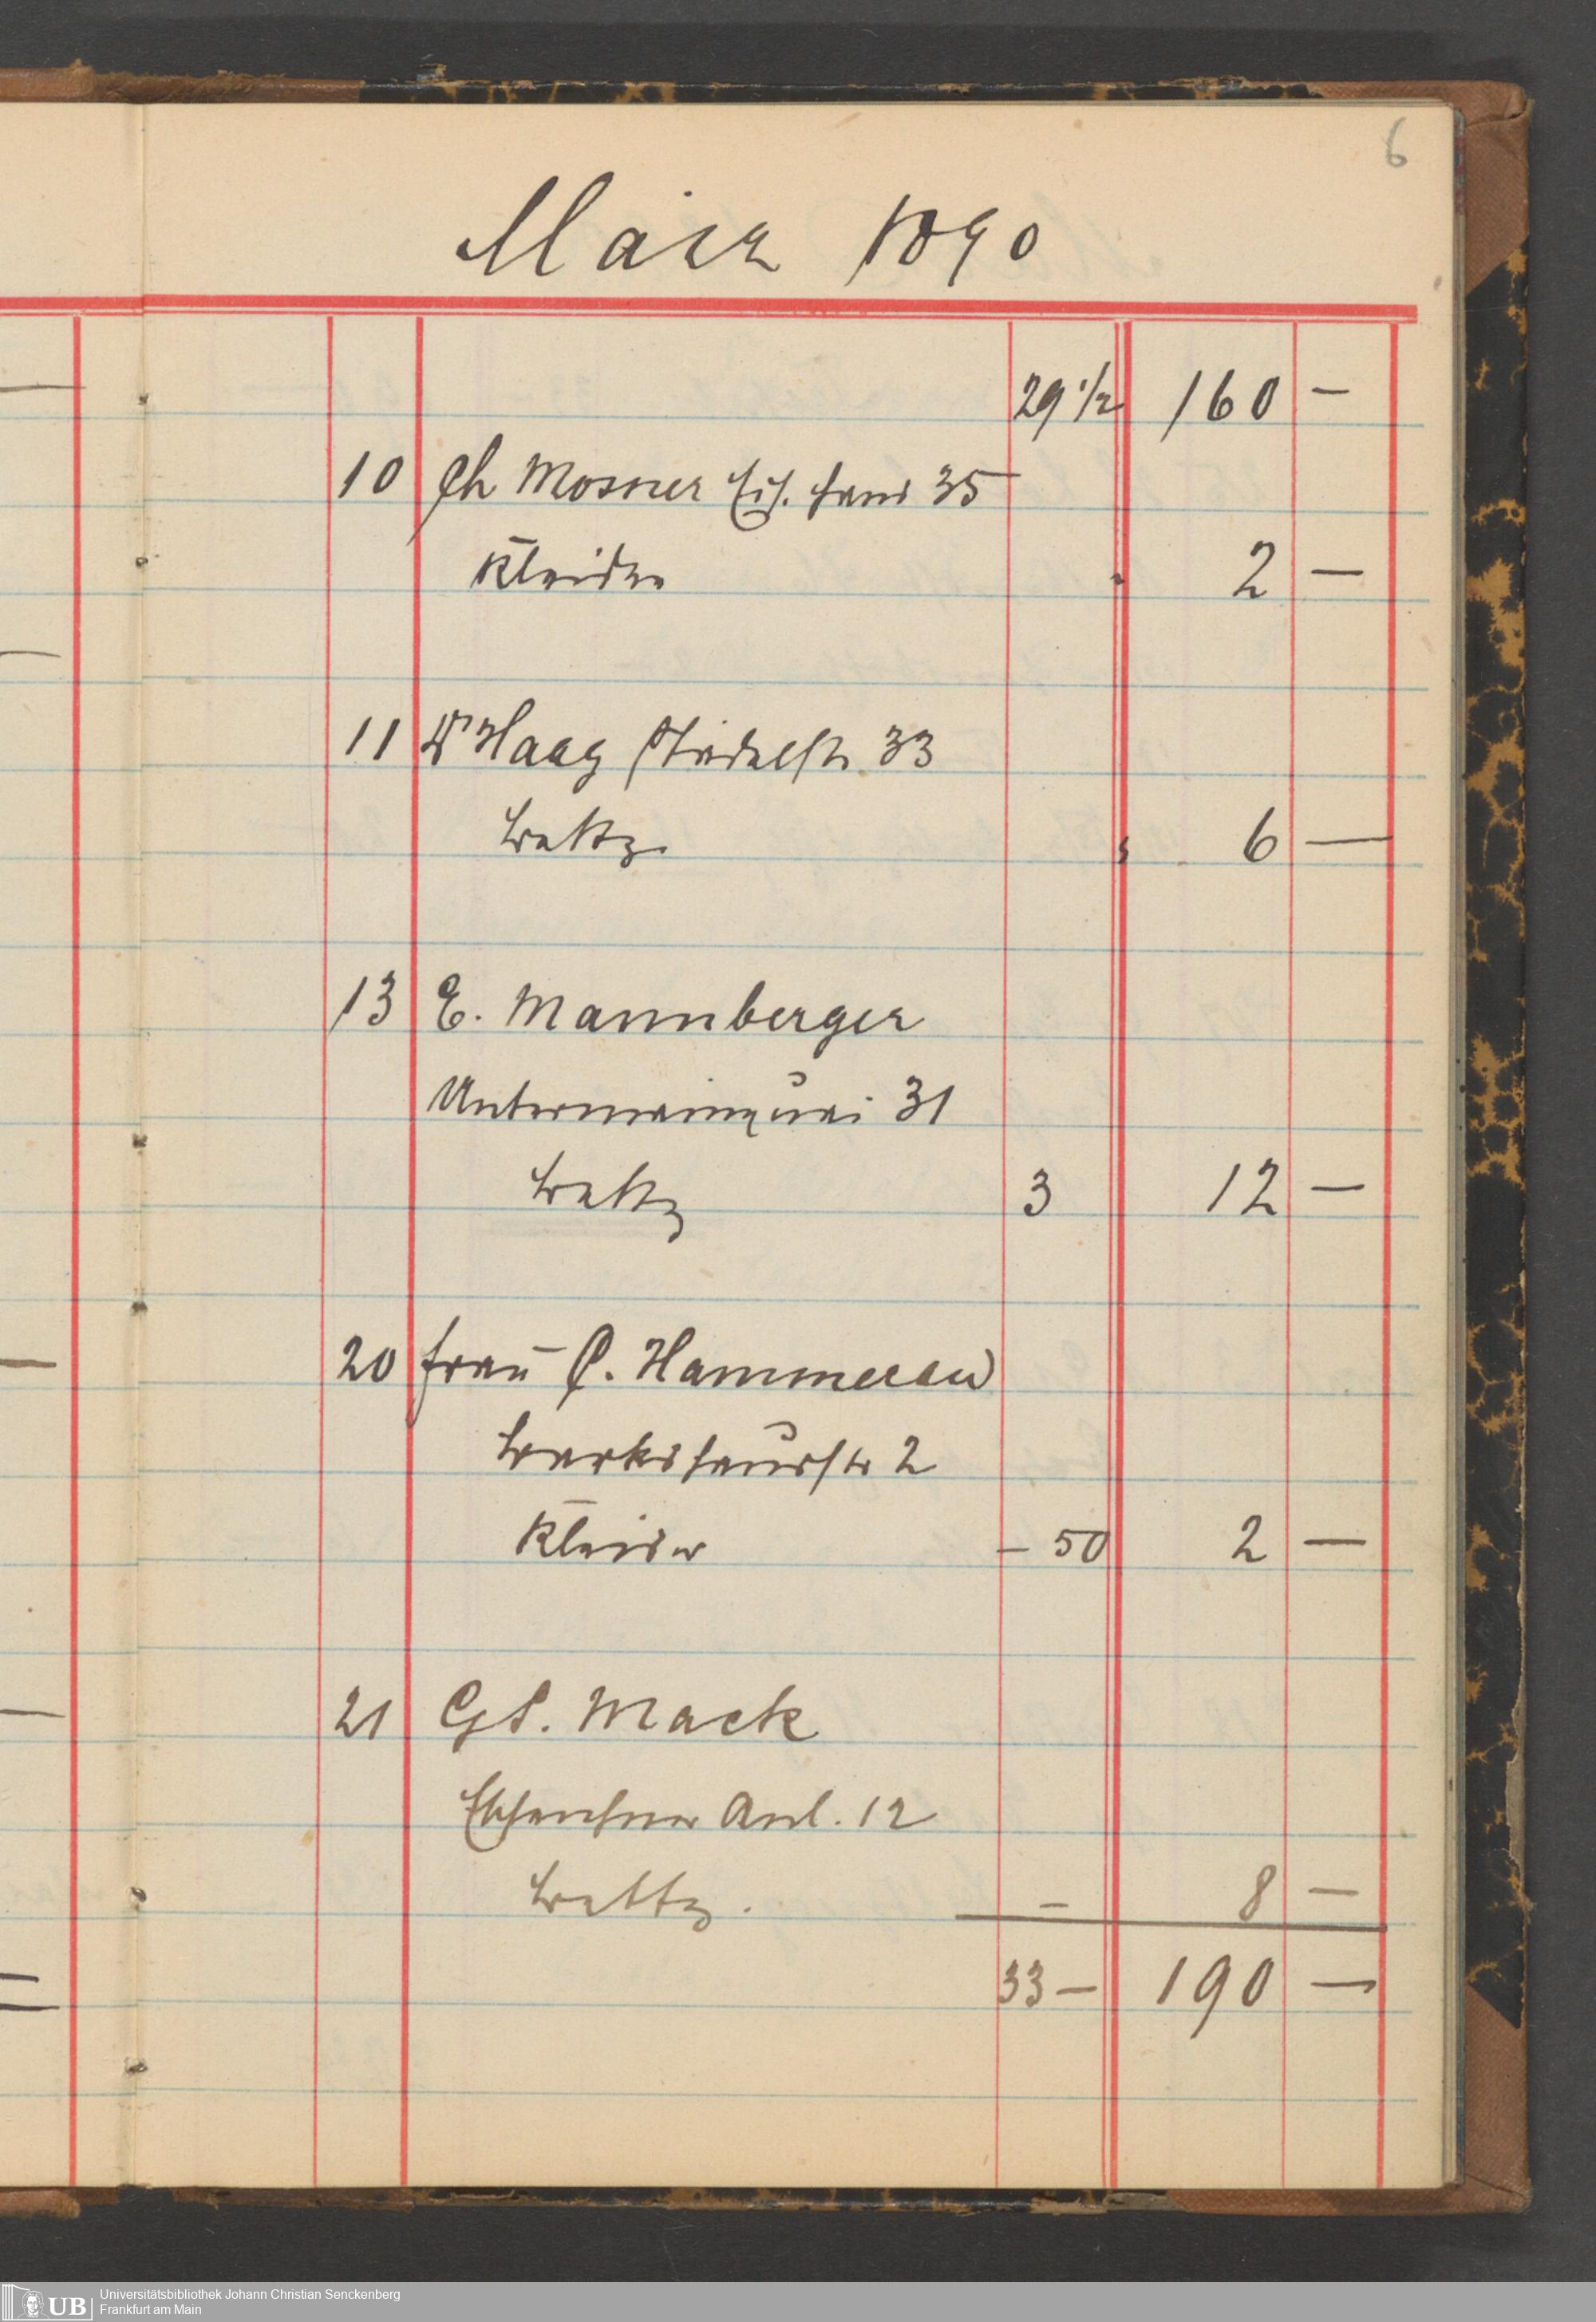 6
März 1890
29 1/2 160 —
10 Ph Mosner 35
Kleider " 2 —
11 Dr Haag Städelstr. 33
Bettz. " 6 —
13 E. Mannberger
Untermainquai 31
Bettz 3 12 —
20 Frau C. Hammeran
2
Kleider — 50 2 —
21 Gs. Mack
Eschenheimer Anl. 12
Bettz. — 8 —
33 — 190 —
UB Universitätsbibliothek Johann Christian Senckenberg
Frankfurt am Main